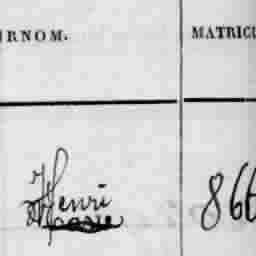 URNOM. MATRICU
Henri 866